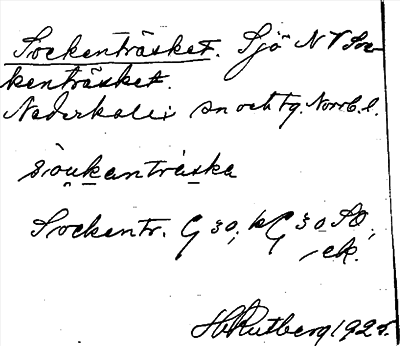 Sockenträsket. Sjö NV Soc-
kenträsket.
Nederkalix sn och tg. Norrb. l.
sòukanträska
Sockentr. G 30, kG 30 SO,
ek.
H Rutberg 1925.